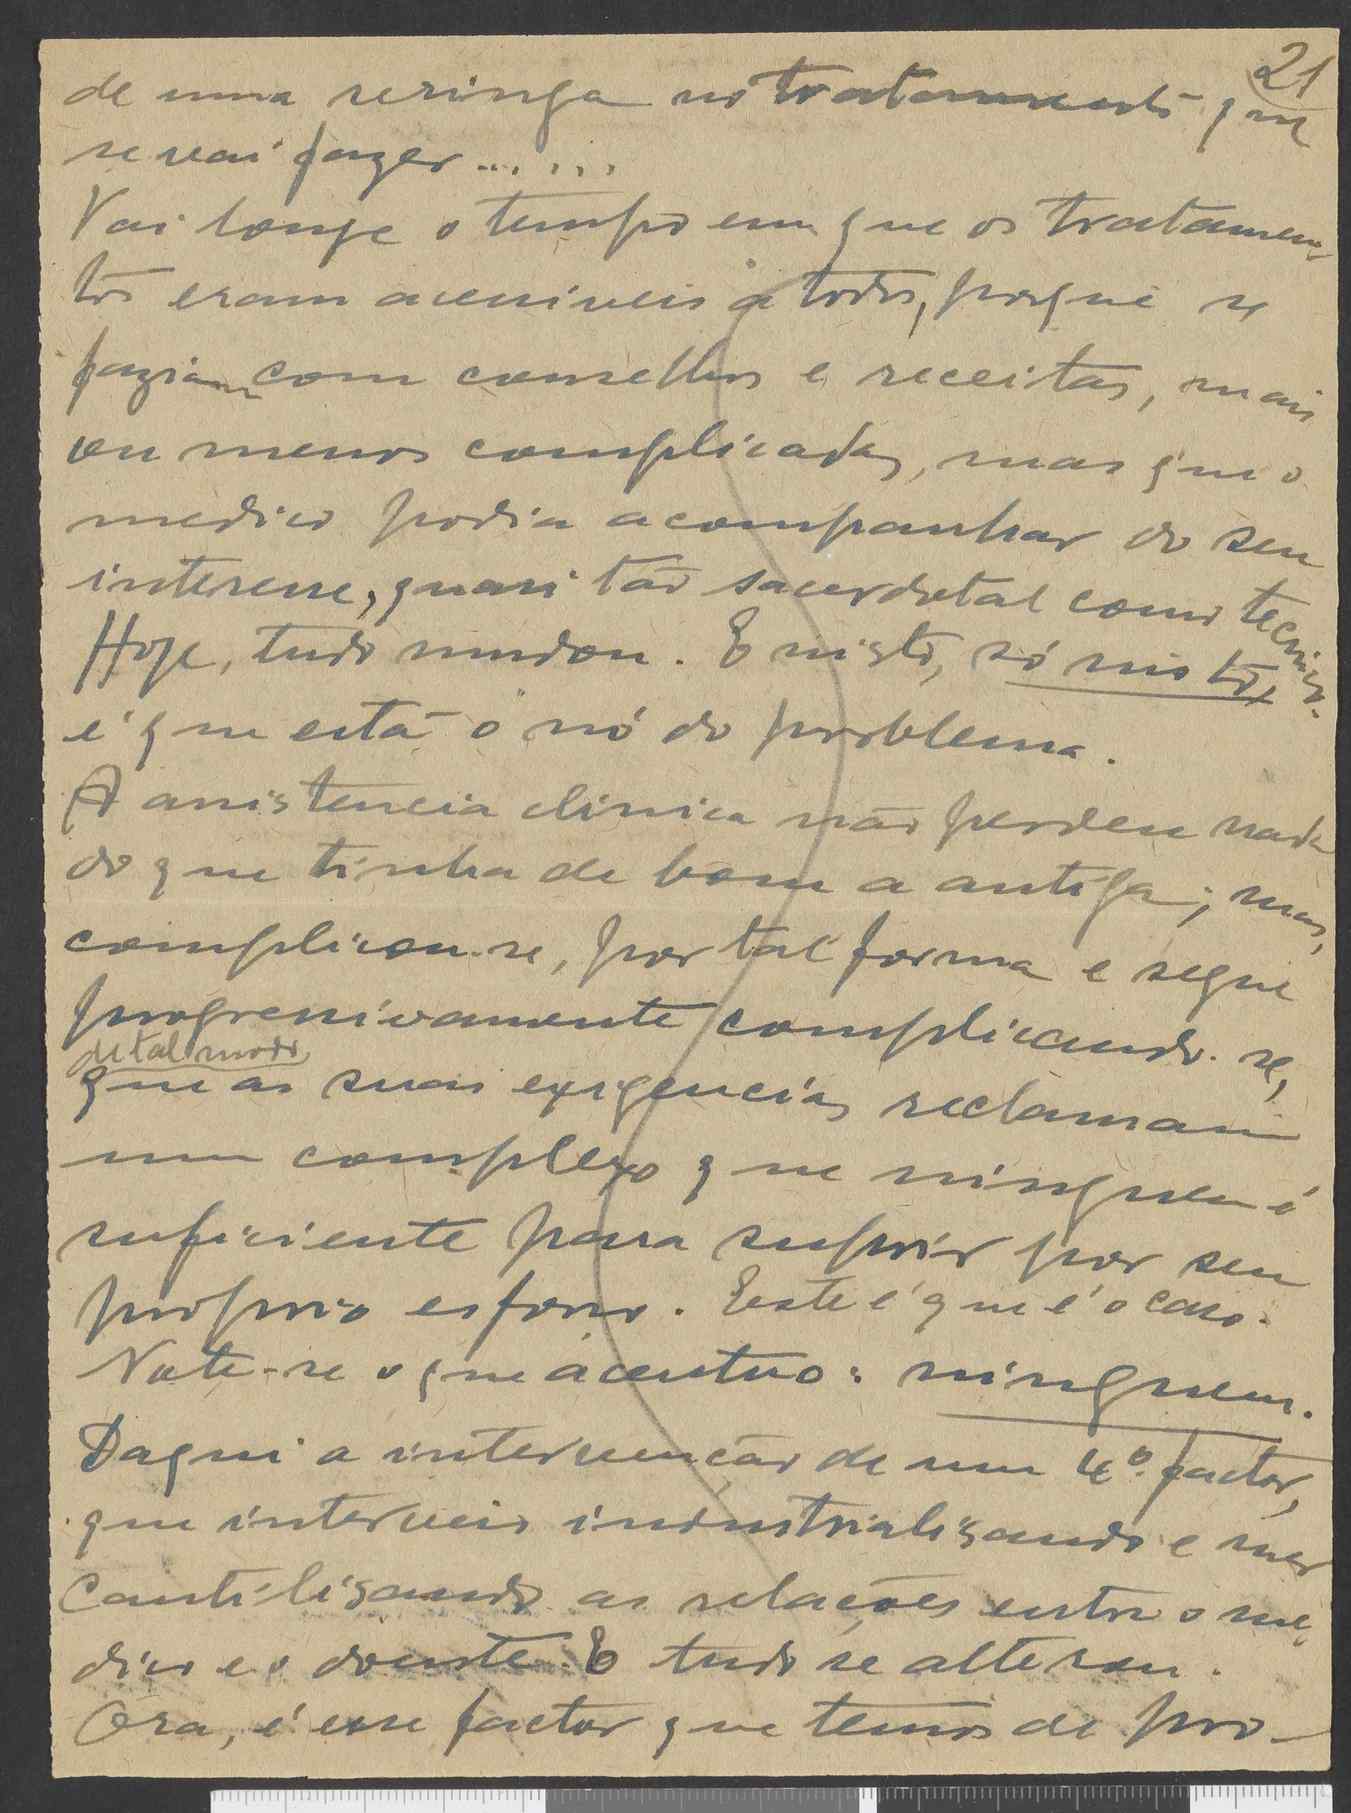 21
de uma seringa no tratamento que
se vai fazer......
Vai longe o tempo em que os tratamen-
tos eram acessiveis a todos, porque se
faziam com conselhos e receitas, mais
ou menos complicadas, mas que o
medico podia acompanhar do seu
interesse, quasi tão sacerdotal como tecnico.
Hoje, tudo mudou. E nisto, só nisto,
é que está o nó do problema.
A assistencia clinica não perdeu nada
do que tinha de bom a antiga; mas,
complicou-se, por tal forma e segue
progressivamente complicando-se,
de tal modo
que as suas exigencias reclamam
um complexo que ninguem é
suficiente para suprir por seu
proprio esforço. Este é que é o caso.
Note-se o que acentuo: ninguem.
Daqui a intervenção de um 4º factor,
que interveio industrialisando e mer
cantilisando as relações entre o me-
dico e o doente. E tudo se alterou.
Ora, é esse factor que temos de pro-